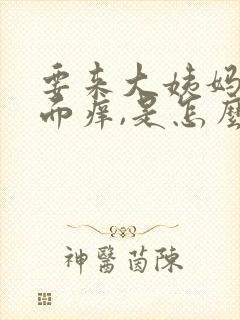 要来大姨妈
而痒,是怎麼
神醫茵陳